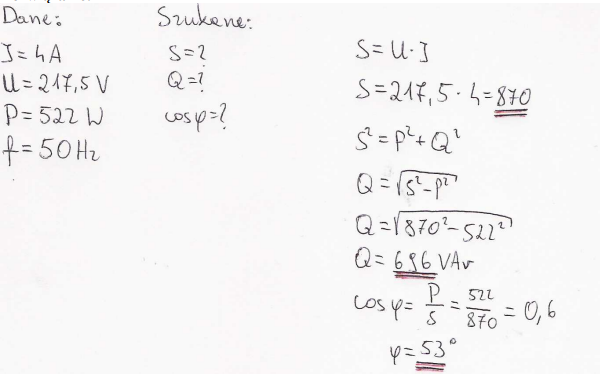 Dane:
J = 4A
U = 217,5 V
P = 522 W
f = 50 Hz
Szukane:
S = ?
Q = ?
cosφ = ?
S = U · J
S = 217,5 · 4 = 870
S² = P² + Q²
Q = √(S² - P²)
Q = √(870² - 522²)
Q = 696 VAr
cos φ = P/S = 522/870 = 0,6
φ = 53°